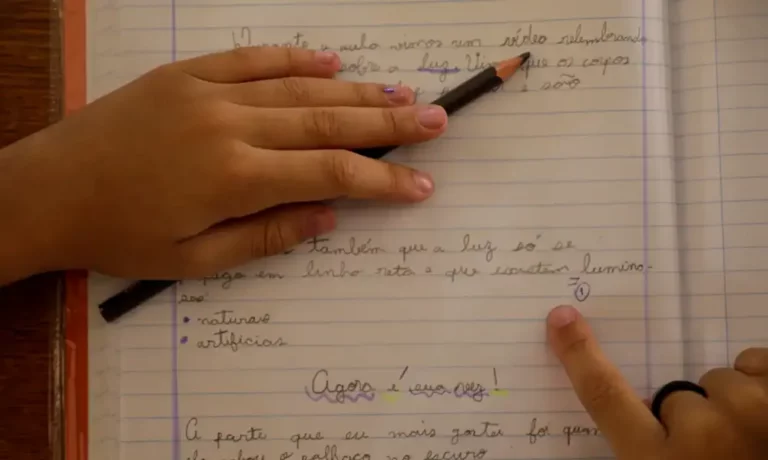 Durante a aula vimos um vídeo relembrando
sobre a luz. Vimos que os corpos
e são
também que a luz só se
em linha reta e que existem lumino-
sos
• naturais
• artificias
①
Agora é sua vez!
A parte que eu mais gostei foi quan
o palhaço no escuro